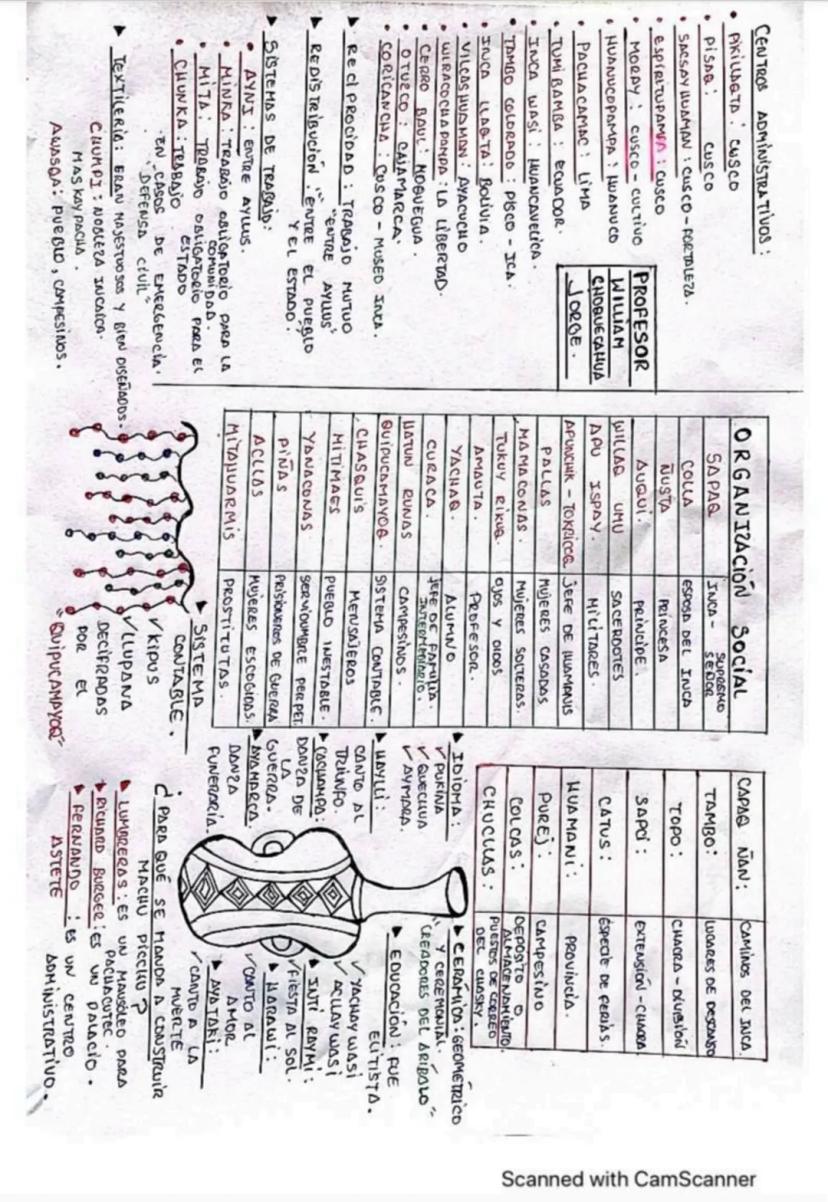 CENTROS ADMINISTRATIVOS:
• PIKILLAQTA: CUSCO
• PISAQ: CUSCO
• SACSAYHUAMAN: CUSCO-FORTALEZA.
• ESPIRITUPAMPA: CUSCO
• MORAY: CUSCO-CULTIVO
• HUANUCOPAMPA: HUANUCO
• PACHACAMAC: LIMA
• TUMIBAMBA: ECUADOR.
• INCA WASI: HUANCAVELICA.
• TAMBO COLORADO: PISCO-ICA.
• INCA LLAQTA: BOLIVIA.
• VILCASHUAMAN: AYACUCHO
• WIRACOCHAPAMPA: LA LIBERTAD.
• CERRO BAUL: MOQUEGUA.
• OTUZCO: CAJAMARCA.
• CORICANCHA: CUSCO-MUSEO INCA.
▶ RECIPROCIDAD: TRABAJO MUTUO
"ENTRE AYLLUS"
▶ REDISTRIBUCIÓN: ENTRE EL PUEBLO
Y EL ESTADO.
▶ SISTEMAS DE TRABAJO:
• AYNI: ENTRE AYLLUS.
• MINKA: TRABAJO OBLIGATORIO PARA LA
COMUNIDAD.
• MITA: TRABAJO OBLIGATORIO PARA EL
ESTADO
• CHUNKA: TRABAJO
EN CASOS DE EMERGENCIA.
"DEFENSA CIVIL"
▶ TEXTILERÍA: ERAN MAJESTUOSOS Y BIEN DISEÑADOS.
CHUMPI: NOBLEZA INCAICA.
MASKAYPACHA.
AWASQA: PUEBLO, CAMPESINOS.
PROFESOR
WILLIAM
CHOQUECAHUA
JORGE.
ORGANIZACIÓN SOCIAL
SAPAQ INCA-SUPREMO SEÑOR
COLLA ESPOSA DEL INCA
ÑUSTA PRINCESA
AUQUI. PRINCIPE.
WILLAQ UMU SACERDOTES
APU ISPAY. MILITARES.
APUNCHIK-TOKRICOQ JEFE DE HUAMANIS
PALLAS MUJERES CASADAS
MAMACONAS. MUJERES SOLTERAS.
TUKUY RIKUQ. OJOS Y OIDOS
AMAUTA. PROFESOR.
YACHAQ. ALUMNO
CURACA. JEFE DE FAMILIA. INTERMEDIARIO.
HATUN RUNAS CAMPESINOS.
QUIPUCAMAYOQ. SISTEMA CONTABLE.
CHASQUIS MENSAJEROS
MITIMAES PUEBLO INESTABLE.
YANACONAS SERVIDUMBRE PERPET.
PIÑAS PRISIONEROS DE GUERRA
ACLLAS MUJERES ESCOGIDAS.
MITAHUARMIS PROSTITUTAS.
▶ SISTEMA
CONTABLE.
✓ KIPUS
✓ LLUPANA
DECIFRADAS
POR EL
"QUIPUCAMAYOQ"
CAPAQ ÑAN: CAMINOS DEL INCA.
TAMBO: LUGARES DE DESCANSO
TOPO: CHACRA-DIVISIÓN
SAPCI: EXTENSIÓN-CHACRA
CATUS: ESPECIE DE FERIAS.
HUAMANI: PROVINCIA.
PUREJ. CAMPESINO
COLCAS: DEPOSITO O ALMACENAMIENTO.
CHUCLLAS. PUESTOS DE CORREO DEL CHASKY.
▶ IDIOMA:
✓ PUKINA
✓ QUECHUA
✓ AYMARA.
▶ HAYLLI:
CANTO AL
TRIUNFO.
▶ CACHAMPA:
DANZA DE
LA
GUERRA.
▶ AYAMARCA
DANZA
FUNERARIA.
▶ CERÁMICA: GEOMÉTRICO
Y CEREMONIAL.
"CREADORES DEL ARÍBALO"
▶ EDUCACIÓN: FUE
ELITISTA.
✓ YACHAY WASI
✓ ACLLAY WASI
▶ INTI RAYMI:
✓ FIESTA AL SOL.
▶ HARAWI:
✓ CANTO AL
AMOR
▶ AYATAKI:
✓ CANTO A LA
MUERTE
¿PARA QUÉ SE MANDA A CONSTRUIR
MACHU PICCHU?
▶ LUMBRERAS: ES UN MAUSÓLEO PARA
PACHACUTEC.
▶ RICHARD BURGER: ES UN PALACIO.
▶ FERNANDO ASTETE: ES UN CENTRO
ADMINISTRATIVO.
Scanned with CamScanner